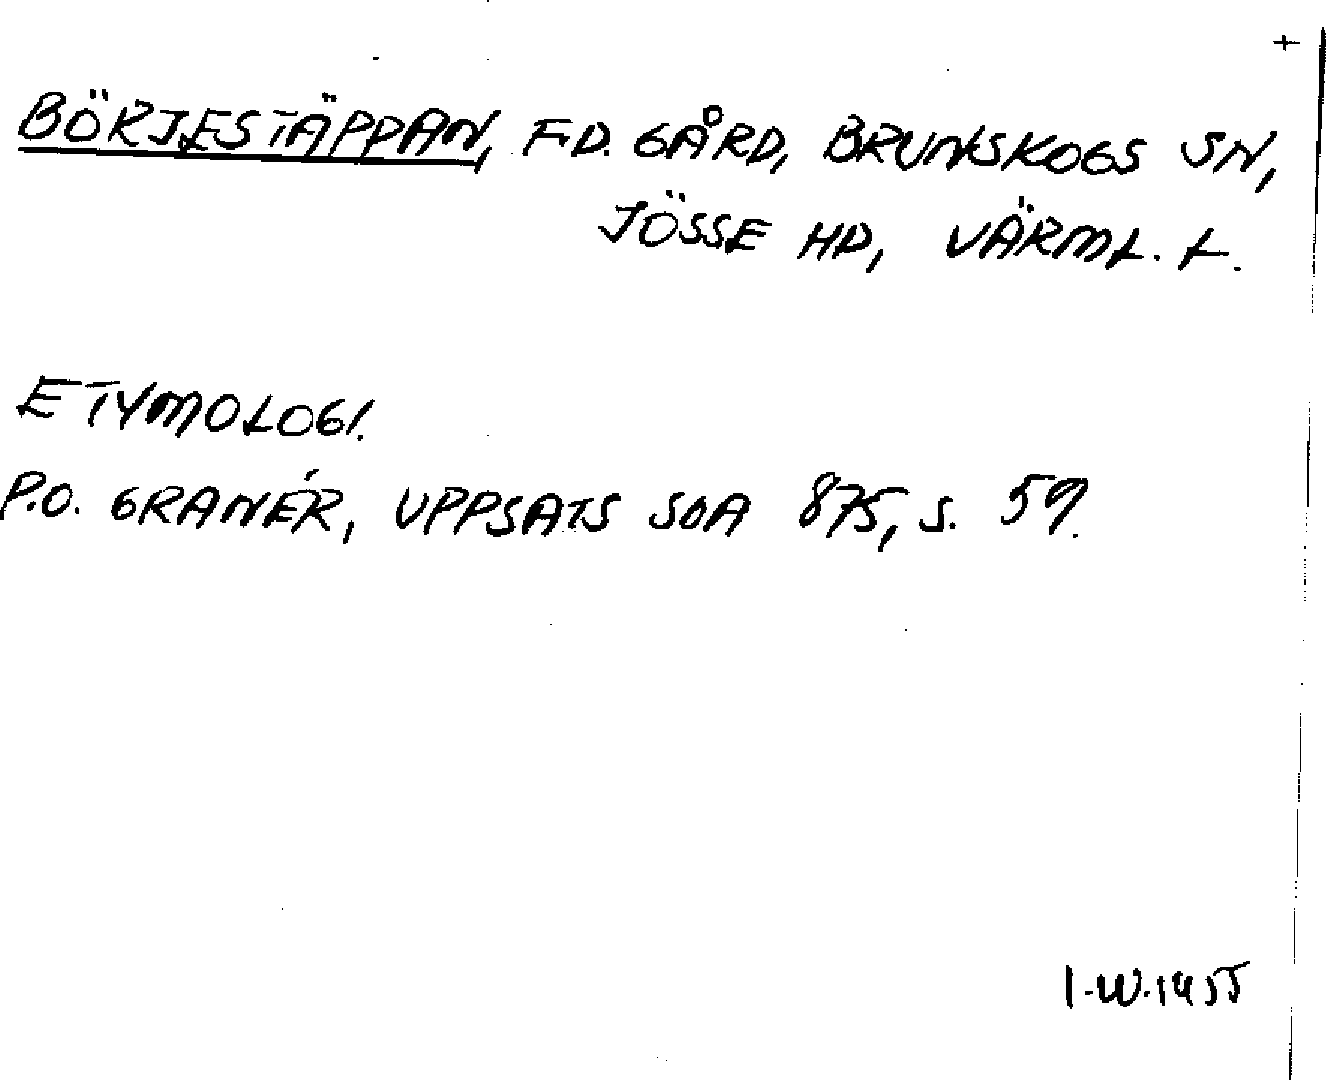 +
BÖRJESTÄPPAN, F.D. GÅRD, BRUNSKOGS SN,
JÖSSE HD, VÄRML. L.
ETYMOLOGI.
P.O. GRANÉR, UPPSATS SOA 875, S. 59.
I.W. 1955